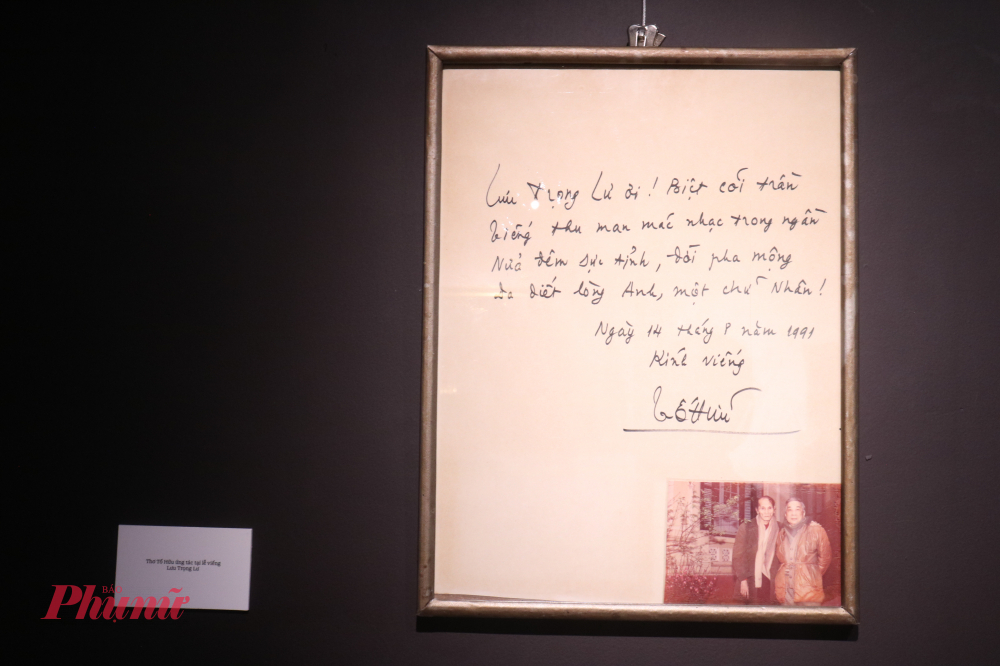 Lưu Trọng Lư ơi! Biệt cõi trần
Tiếng thu man mác nhạc trong ngần
Nửa đêm sực tỉnh, đời pha mộng
Da diết lòng Anh, một chữ Nhân!
Ngày 14 tháng 8 năm 1991
Kính viếng
Tố Hữu
Thơ Tố Hữu ứng tác tại lễ viếng
Lưu Trọng Lư
BÁO
Phụ nữ